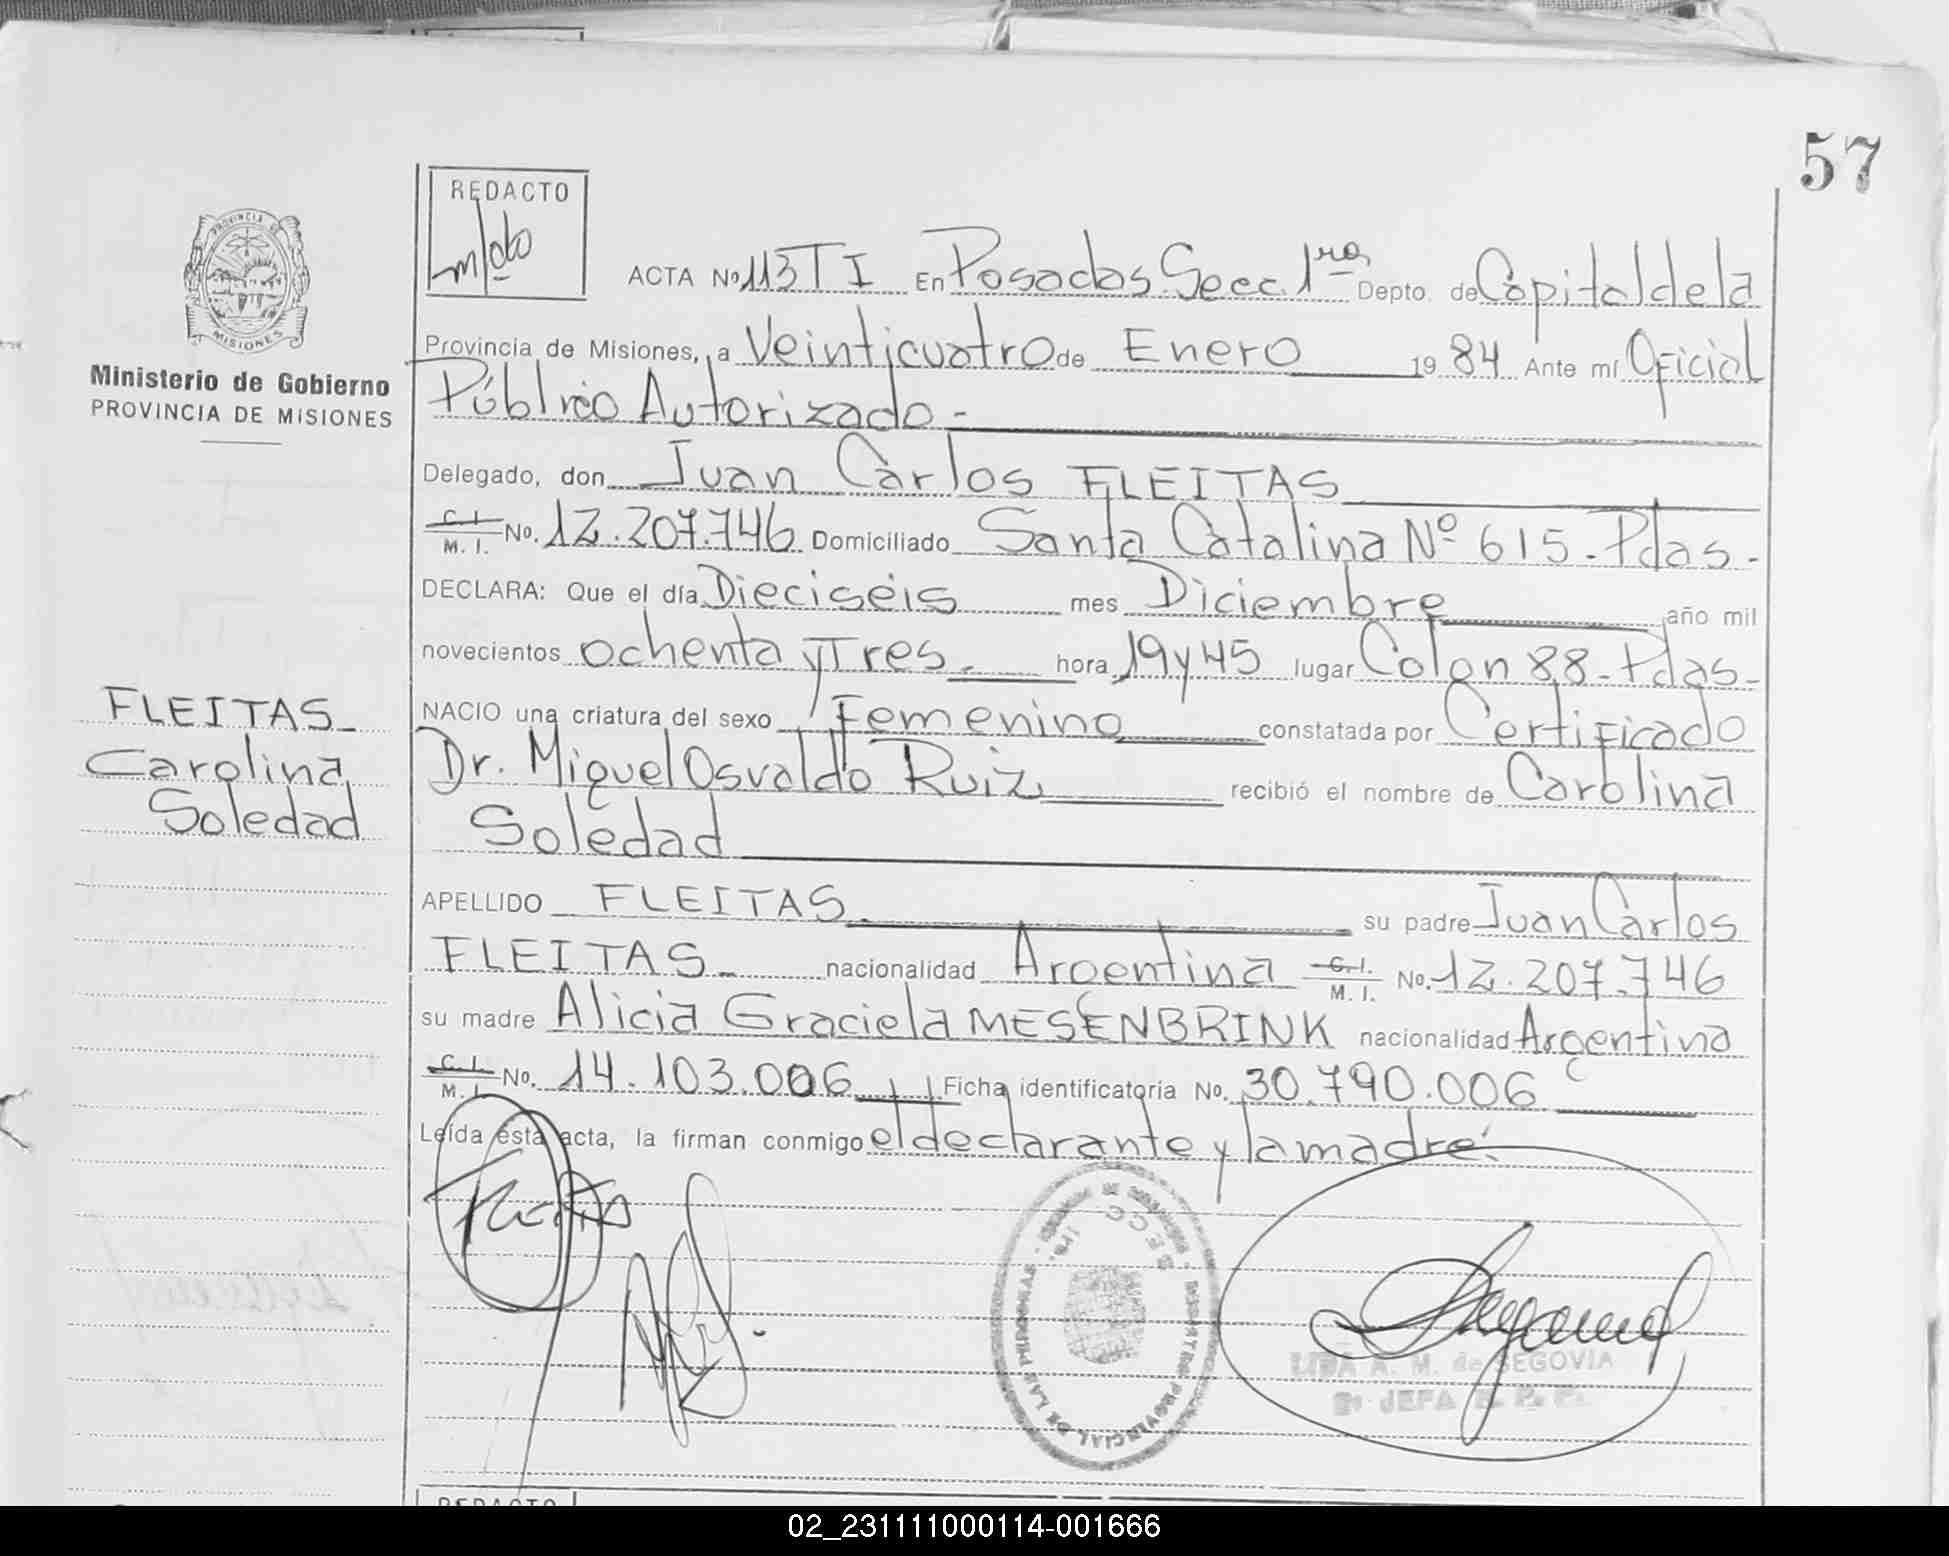 57
REDACTO
ACTA Nº 113 T I En Posadas Secc. 1ra Depto. de Capital de la
Provincia de Misiones, a Veinticuatro de Enero 1984 Ante mí Oficial
Público Autorizado -
Delegado, don Juan Carlos FLEITAS
C. I. M. I. No. 12.207.746 Domiciliado Santa Catalina Nº 615 - Pdas -
DECLARA: Que el día Dieciséis mes Diciembre año mil
novecientos ochenta y Tres. hora 19 y 45 lugar Colon 88 - Pdas -
NACIO una criatura del sexo Femenino constatada por Certificado
Dr. Miguel Osvaldo Ruiz recibió el nombre de Carolina
Soledad
APELLIDO FLEITAS su padre Juan Carlos
FLEITAS - nacionalidad Argentina C. I. M. I. No. 12.207.746
su madre Alicia Graciela MESENBRINK nacionalidad Argentina
C. I. M. I. No. 14.103.006 Ficha identificatoria No. 30.790.006
Leída esta acta, la firman conmigo el declarante y la madre.
PROVINCIA DE
MISIONES
Ministerio de Gobierno
PROVINCIA DE MISIONES
FLEITAS -
Carolina
Soledad
LIDA A. M. de SEGOVIA
JEFA
REDACTO
02_231111000114-001666